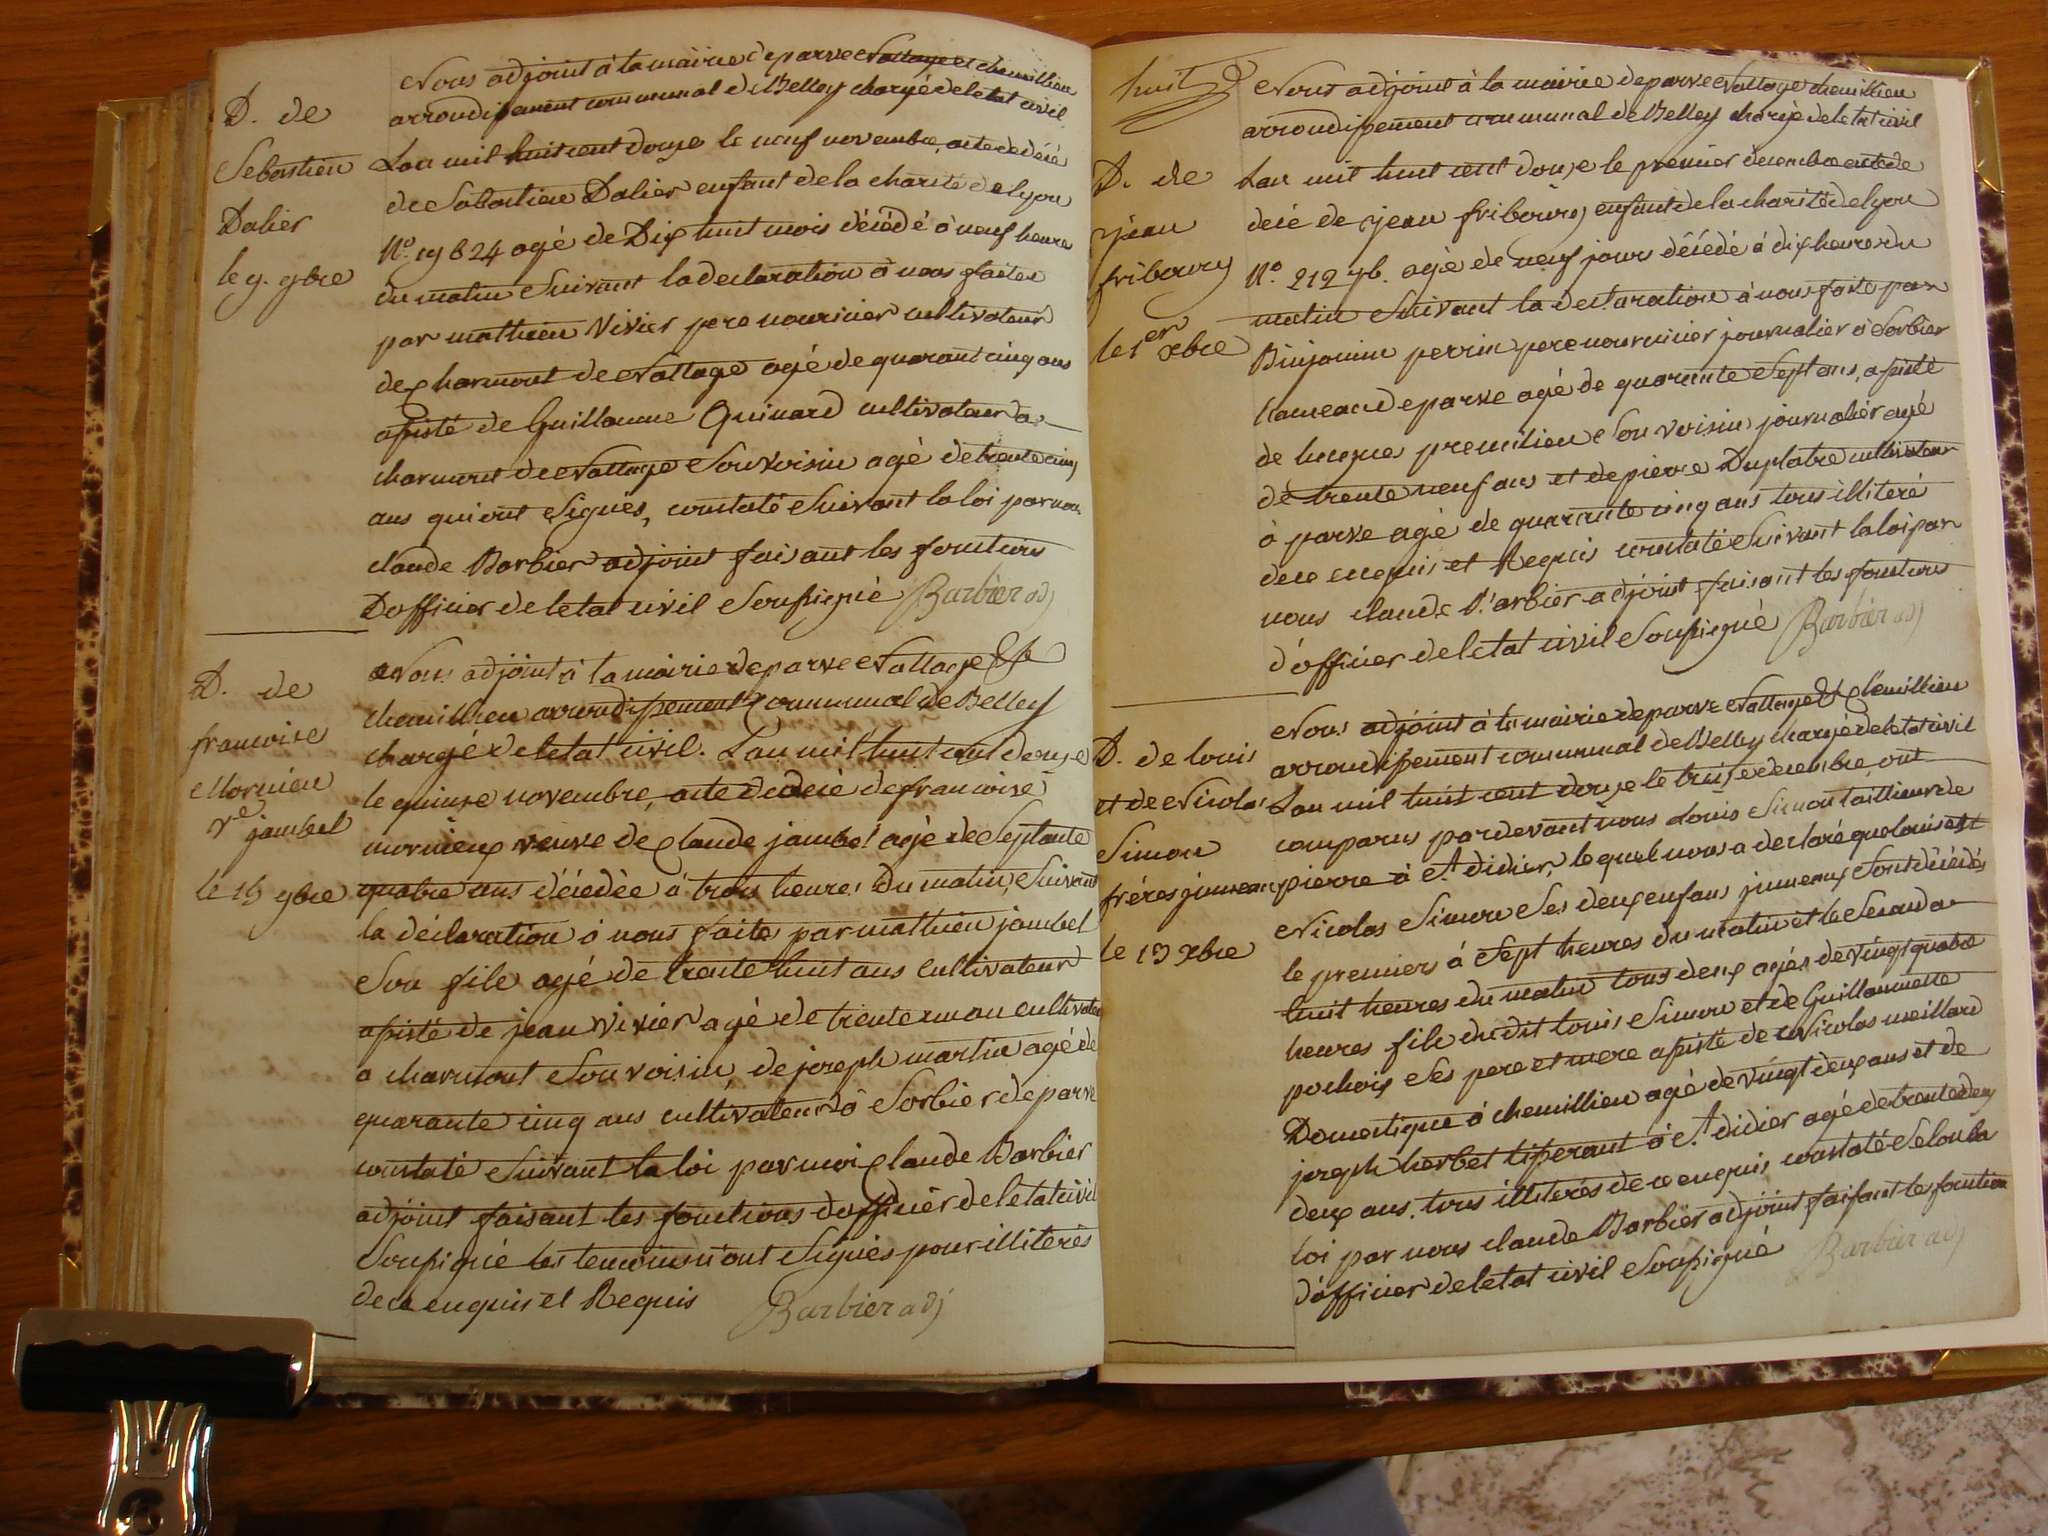 D. de
Sebastien
Dalier
le 9. 9bre
Nous adjoint à la mairie de parve Nattage et chemillieu
arrondissement communal de Belley chargé de letat civil
Lan mil huit cent douze le neuf novembre, acte de décé
de Sebastien Dalier enfant de la charité de lyon
N.º 19824 agé de Dix huit mois décédé à neuf heures
du matin Suivant la declaration à nous faite
par mathieu Vivier pere nouricier cultivateur
de Charmont de Nattage agé de quarant cinq ans
assisté de Guillaume Quinard cultivateur a
charmont de Nattage Son voisin agé de trente cinq
ans qui ont Signés, constaté Suivant la loi par nous
claude Barbier adjoint faisant les fonctions
D'officier de letat civil Soussigné Barbier adj
D. de
francoise
Mornieu
ve jambel
le 15 9bre
Nous adjoint à la mairie de parve Nattage &
chemillieu arrondissement Communal de Belley
chargé de letat civil. Lan mil huit cent douze
le quinze novembre, acte de decé de francoise
mornieux veuve de Claude jambel agé de Septante
quatre ans décédée à trois heures du matin, Suivant
la déclaration à nous faite par mathieu jambel
Son fils agé de trente huit ans Cultivateur
assisté de jean vivier agé de trente un an cultivateur
a charmont Son voisin, de joseph martin agé de
quarante cinq ans cultivateur à Sorbier de parve
constaté Suivant la loi par moi Claude Barbier
adjoint faisant les fonctions d'officier de letat civil
Soussigné les temoins n'ont Signés pour illiterés
de ce enquis et Requis Barbier adj
huit
D. de
jean
fribourg
le 1er xbre
Nous adjoint à la mairie de parve Nattage chemillieu
arrondissement communal de Belley chargé de letat civil
Lan mil huit cent douze le premier decembre acte de
decé de jean fribourg enfant de la charité de lyon
N.º 21276. agé de neuf jours décédé à dix heures du
matin Suivant la declaration à nous faite par
Binjamin perrin pere nourricier journalier à Sorbier
hameau de parve agé de quarante Sept ans, assisté
de hugues premillieu Son voisin journalier agé
de trente neuf ans et de pierre Duplatre cultivateur
à parve agé de quarante cinq ans tous illiteré
de ce enquis et Requis constaté Suivant la loi par
nous claude Barbier adjoint faisant les fonctions
d'officier de letat civil Soussigné Barbier adj
D. de louis
et de Nicolas
Simon
fréres jumeaux
le 13 xbre
Nous adjoint à la mairie de parve Nattage & Chemillieu
arrondissement communal de Belley chargé de letat civil
Lan mil huit cent douze le treize decembre, ont
comparus par devant nous Louis Simon taillieur de
pierre à St didier, lequel nous a declaré que louis et
Nicolas Simon Ses deux enfans jumeaux Sont décédés
le premier à Sept heures du matin et le Second a
huit heures du matin tous deux agés de vingt quatre
heures fils du dit Louis Simon et de Guillaumette
pochoix Ses pere et mere assisté de Nicolas meillard
Domestique à chemillieu agé de vingt deux ans et de
joseph herbet tisserant à St didier agé de trente deux
deux ans. tous illiterés de ce enquis, constaté Selon la
loi par nous claude Barbier adjoint faisant les fonction
d'officier de letat civil Soussigné Barbier adj